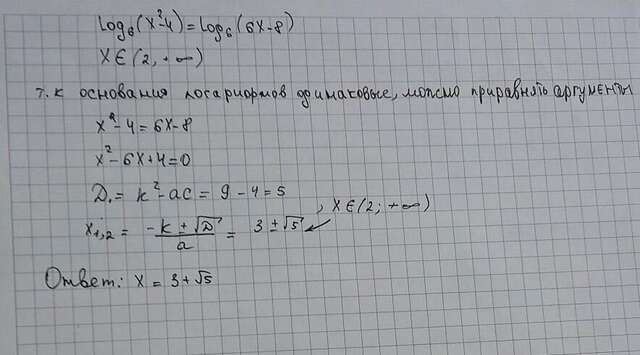 log₆(x²-4)=log₆(6x-8)
x∈(2,+∞)
т.к основания логарифмов одинаковые, можно приравнять аргументы
x²-4=6x-8
x²-6x+4=0
D₁=k²-ac=9-4=5
x₁,₂=(-k±√D)/a=3±√5, x∈(2;+∞)
Ответ: x=3+√5